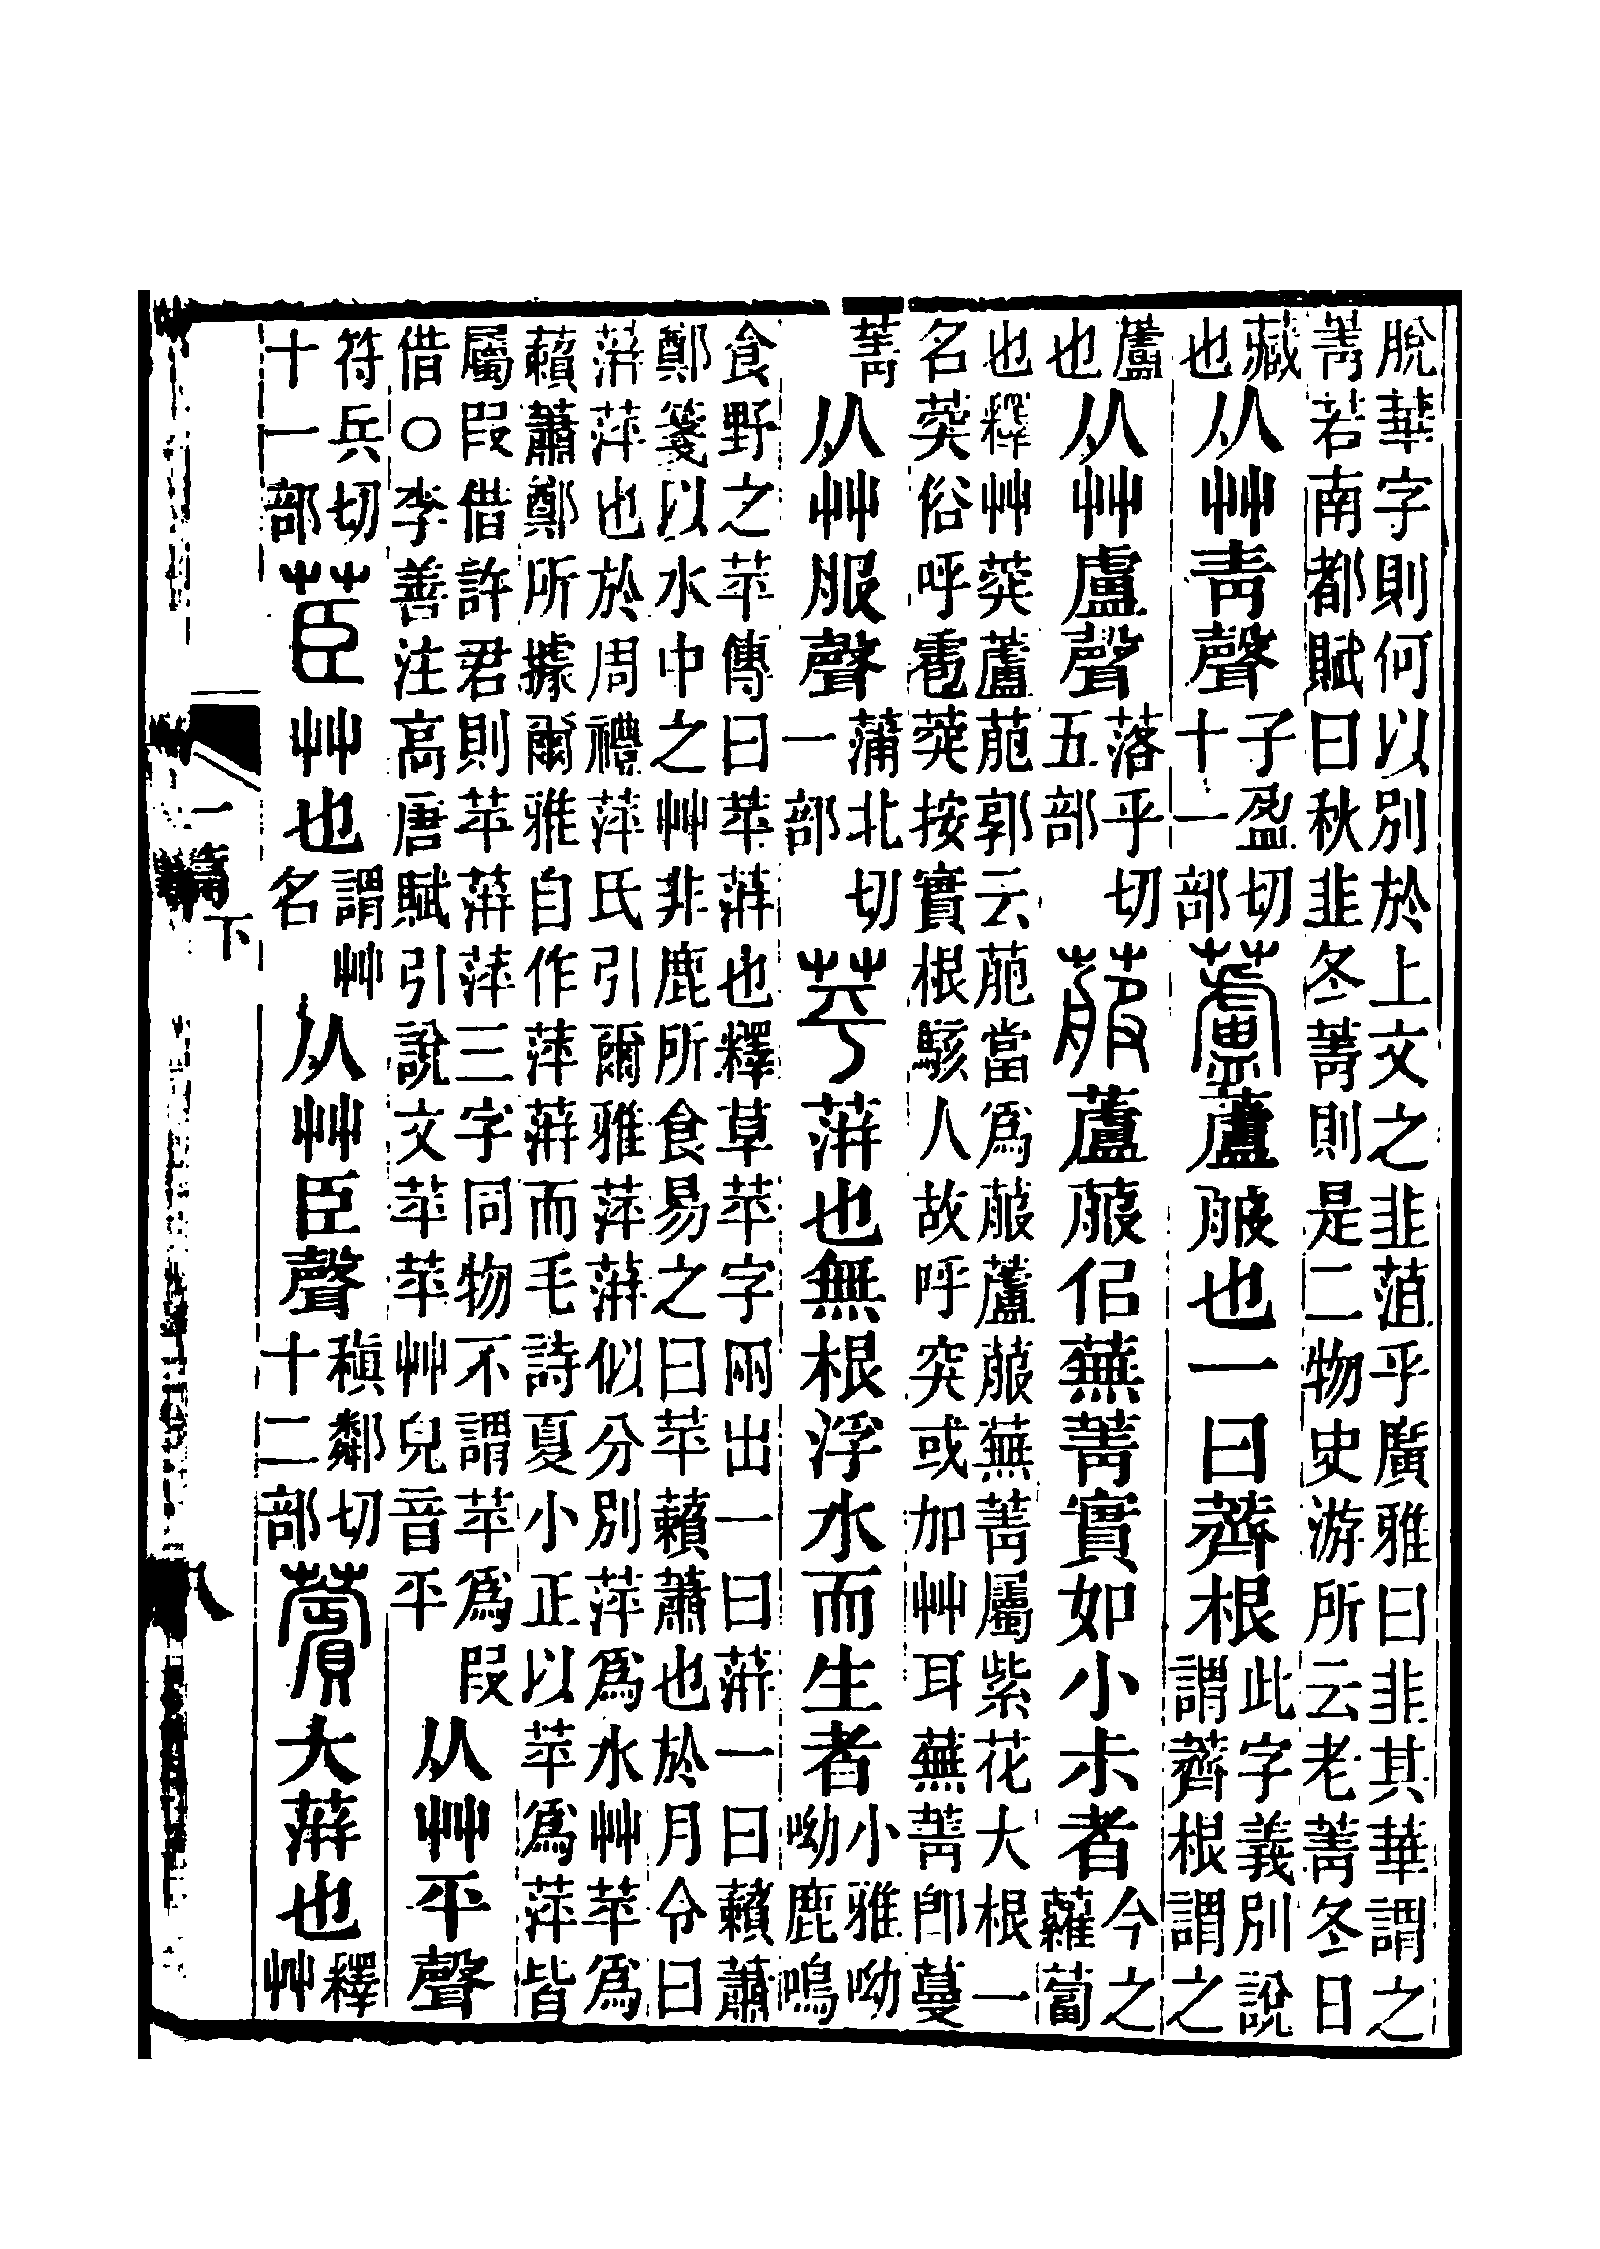 脫華字則何以別於上文之韭菹乎廣雅曰韭其華謂之
菁若南都賦曰秋韭冬菁則是二物史游所云老菁冬日
藏也从艸青聲子盈切十一部蘆蘆菔也一曰薺根此字義別說謂薺根謂之
蘆也从艸盧聲落乎切五部菔蘆菔佀蕪菁實如小尗者今之蘿蔔
也釋艸葖蘆萉郭云萉當爲菔蘆菔蕪菁屬紫花大根一
名葖俗呼雹葖按實根駭人故呼突或加艸耳蕪菁卽蔓
菁从艸服聲蒲北切一部苹蓱也無根浮水而生者小雅呦呦鹿鳴
食野之苹傳曰苹蓱也釋草苹字兩出一曰蓱一曰藾蕭
鄭箋以水中之艸非鹿所食易之曰苹藾蕭也於月令曰
蓱萍也於周禮萍氏引爾雅萍蓱似分別萍爲水艸苹爲
藾蕭鄭所據爾雅自作萍蓱而毛詩夏小正以苹爲萍皆
屬叚借許君則苹蓱萍三字同物不謂苹爲叚
借○李善注高唐賦引說文苹苹艸皃音平从艸平聲
符兵切十一部茞艸也謂艸名从艸臣聲稹鄰切十二部薲大蓱也釋艸
一篇下
八